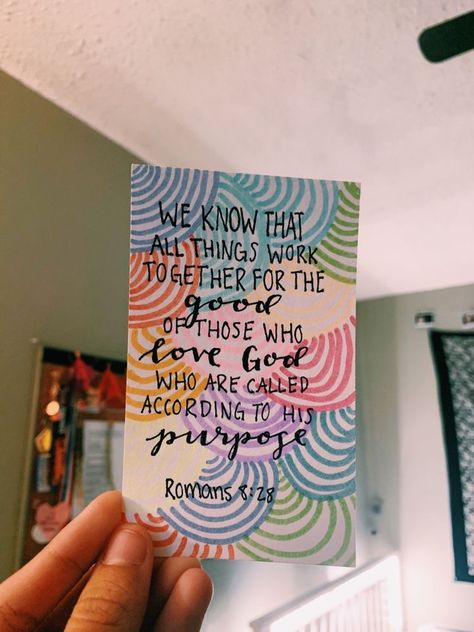 WE KNOW THAT
ALL THINGS WORK
TOGETHER FOR THE
good
OF THOSE WHO
love God
WHO ARE CALLED
ACCORDING TO HIS
purpose
Romans 8:28